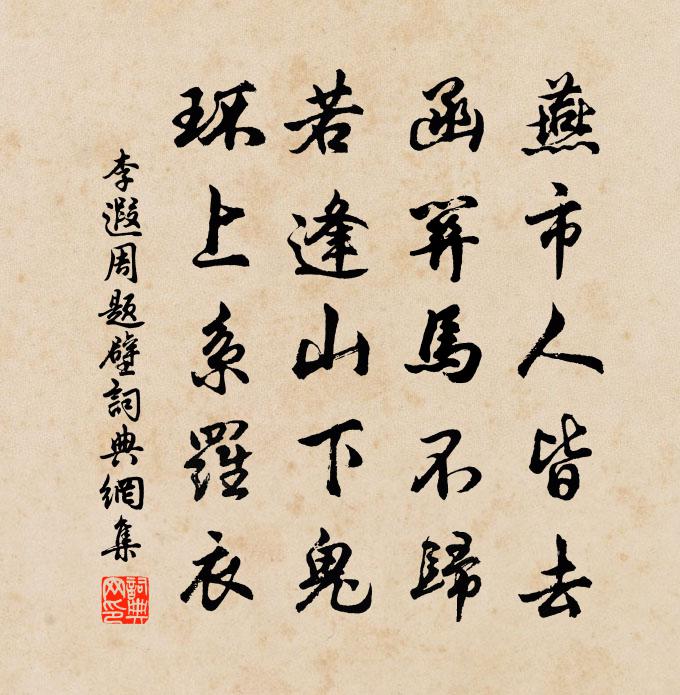 燕市人皆去
函關馬不歸
若逢山下鬼
环上系羅衣
李遐周題壁詞典網集
詞典网印